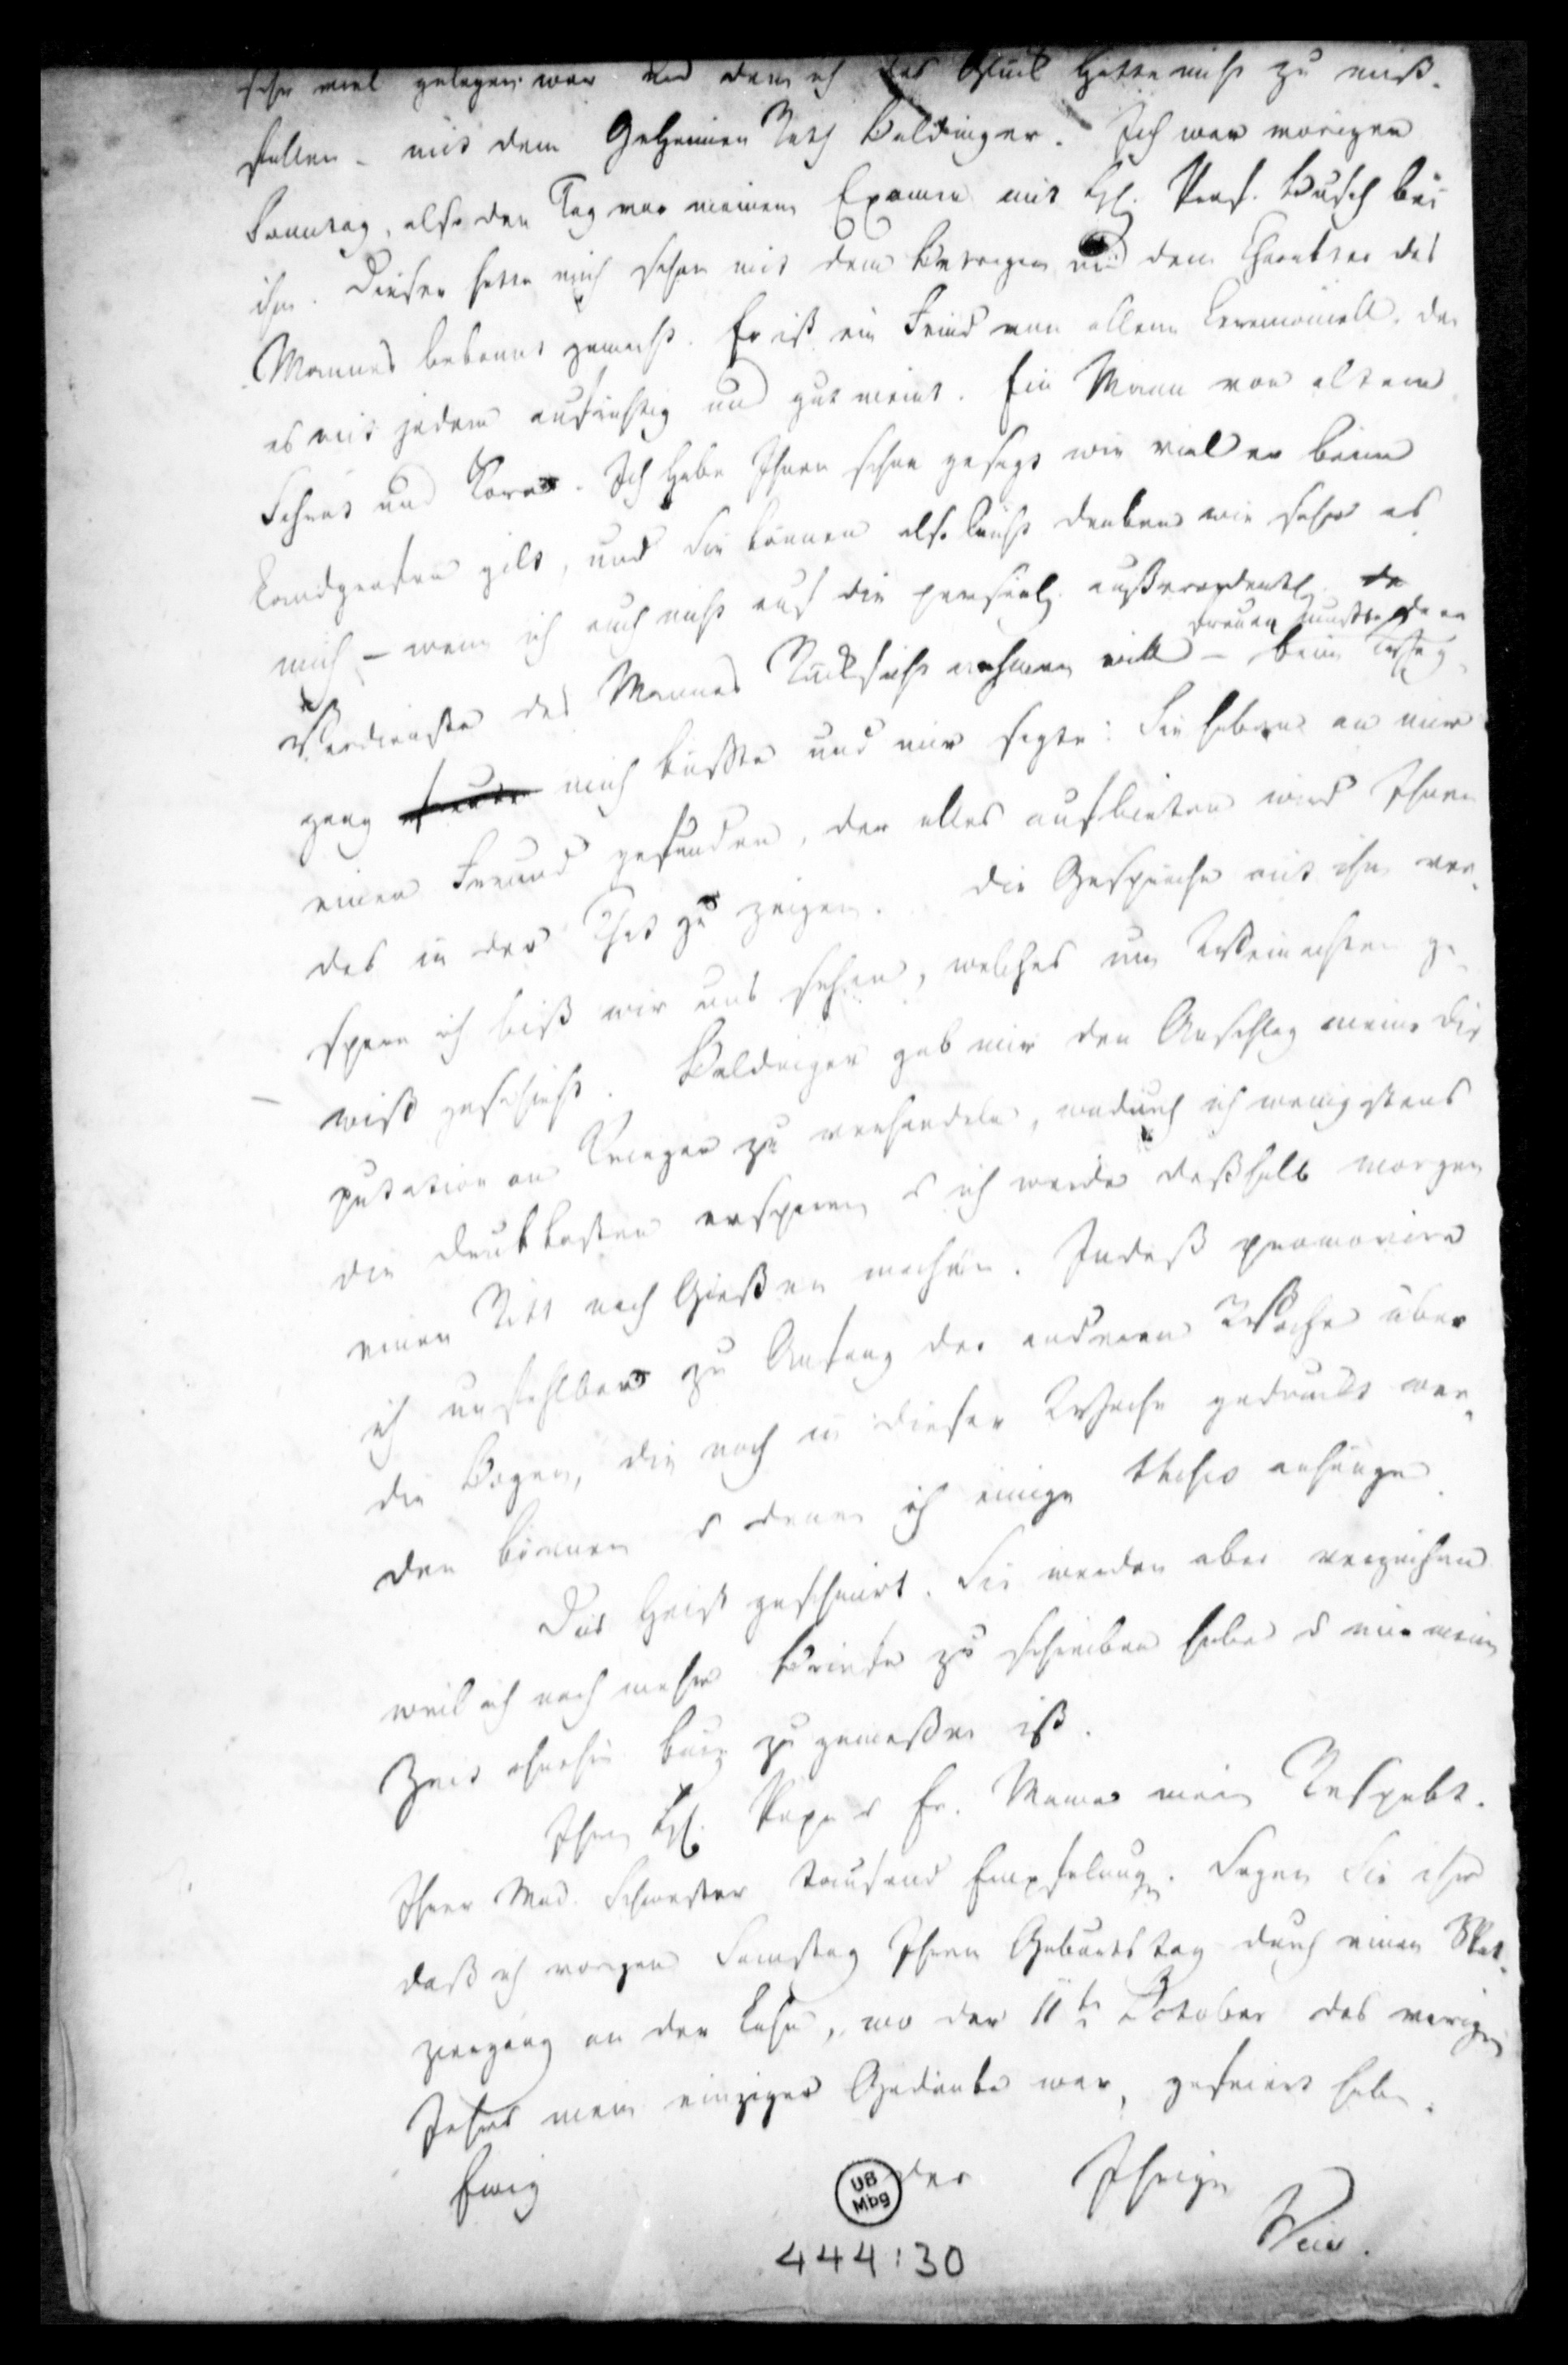 sehr viel gelegen war und dem ich das Glück hatte nicht zu miß-
fallen – mit dem Geheimen Rath Baldinger. Ich war vorigen
Sonntag, also den Tag vor meinem Examen mit H. Prof. Busch bei
ihm. Dieser hatte mich schon mit dem Betragen und dem Charakter des
Mannes bekannt gemacht. Er ist ein Feind von allem Ceremoniell. der
es mit jedem aufrichtig und gut meint. Ein Mann von altem
Schrot und Korn. Ich habe Ihnen schon gesagt wie viel er beim
Landgrafen gilt, und Sie können also leicht denken wie sehr es
mich – wenn ich auch nicht auf die persönl. außerordentl.
freuen mußte, da er
Verdienste des Mannes Rücksicht nehmen will – beim Weg-
gang mich küßte und mir sagte: Sie haben an mir
einen Freund gefunden, der alles aufbieten wird Ihnen
das in der That zu zeigen. Die Gespräche mit ihm ver-
spare ich biß wir uns sehen, welches um Weinachten ge-
wiß geschieht. Baldinger gab mir den Anschlag meine Dis-
putation an Krieger zu verhandeln, wodurch ich wenigstens
die Druckkosten erspare, u ich werde deßhalb morgen
einen Ritt nach Gießen machen. Indeß promovire
ich unfehlbar zu Anfang der anderen Woche über
die Bogen, die noch in dieser Woche gedruckt wer-
den können u denen ich einige theses anhänge.
Das heist geschmirt. Sie werden aber verzeihen
weil ich noch mehr Briefe zu schreiben habe u mir meine
Zeit ohnehin kurz zugemessen ist.
Ihrem H. Papa u Fr. Mama mein Respekt.
Ihrer Mad. Schwester tausend Empfelung. Sagen Sie ihr
daß ich vorigen Samstag Ihren Geburtstag durch einen Spat-
ziergang an der Lahn, wo der 11te October des vorigen
Jahrs mein einziger Gedanke war, gefeiert habe.
Ewig
der Ihrige
UB
Mbg
444:30